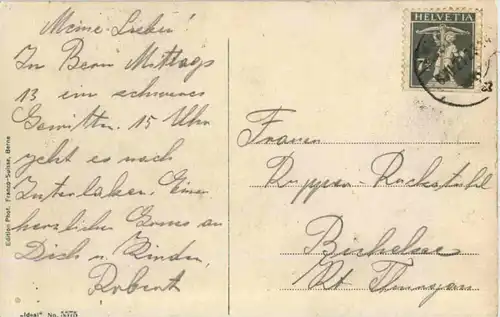 Meine Lieben!
In Bern Mittags
13 ein schweres
Gewitter. 15 Uhr
geht es nach
Interlaken. Einen
herzlichen Gruss an
Dich u. Kinder,
Robert
HELVETIA
7½
Frauen
Ruppen Ruckstuhl
Bichelsee
Kt Thurgau
Edition Phot. Franco-Suisse, Berne
„Ideal" No.